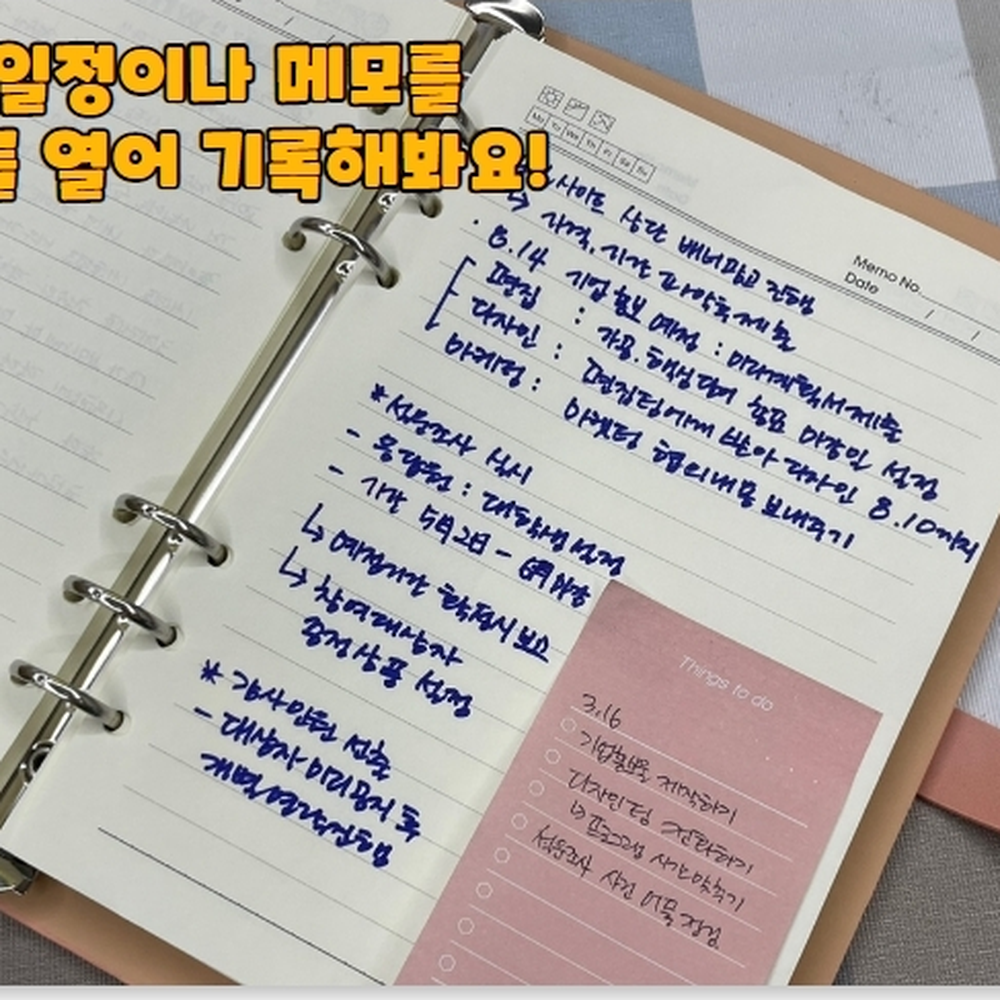 일정이나 메모를
열어 기록해봐요!
Mo Tu We Th Fr Sa Su
Memo No.
Date / /
사이트 상단 배너광고 진행
↳ 가격, 기간 파악 후 제출
· 8.14 기업홍보 예정 : 미리계획서 제출
편집 : 가공.해상되어 최종 마감일 설정
디자인 : 편집팀에게 받아 디자인 8.10까지
마케팅 : 마켓팅 협의내용 보내주기
*설문조사 실시
- 응답원 : 대학생 설정
- 기간 5월2일 - 6월 마감
↳ 예정기간 확정시 보고
↳ 참여대상자
증정상품 설정
* 감사인원 선출
- 대상자 미리공지 후
개별연락진행
Things to do
3.16
기업홍보물 제작하기
디자인팀 전달하기
↳ 프로그램 시간 맞추기
설문조사 사전 어플 점검